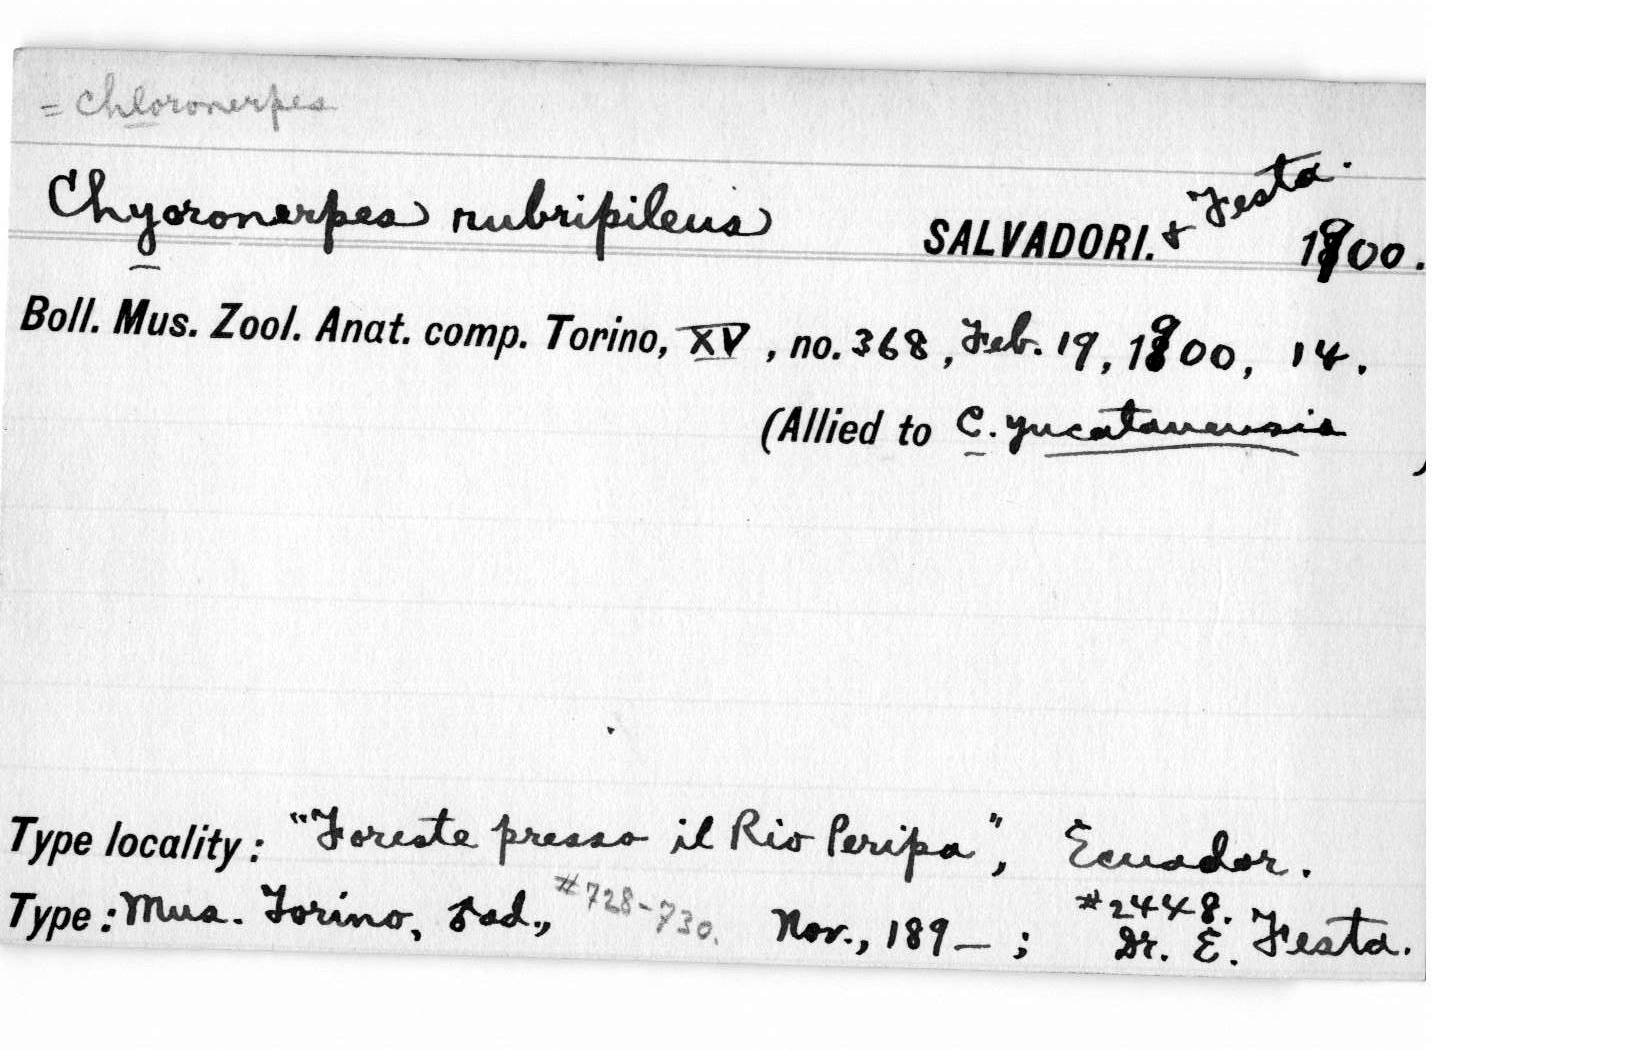 = Chloronerpes
Chyoronerpes rubripileus SALVADORI. & Festa. 1900.
Boll. Mus. Zool. Anat. comp. Torino, XV, no. 368, Feb. 19, 1900, 14.
(Allied to C. yucatanensis )
Type locality: "Foreste presso il Rio Peripa", Ecuador.
Type: Mus. Torino, ad., #728-730. Nov., 189_; #2448. Dr. E. Festa.